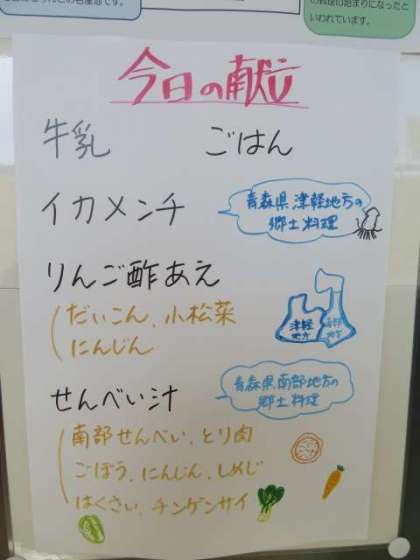 の料理の始まりになったと
いわれています。
今日の献立
牛乳 ごはん
イカメンチ
青森県津軽地方の
郷土料理
りんご酢あえ
だいこん、小松菜
にんじん
津軽
地方
南部
地方
せんべい汁
青森県南部地方の
郷土料理
南部せんべい、とり肉
ごぼう、にんじん、しめじ
はくさい、チンゲンサイ